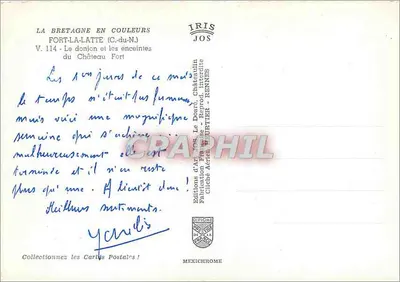 LA BRETAGNE EN COULEURS
FORT-LA-LATTE (C.-du-N.)
V. 114 - Le donjon et les enceintes
du Château Fort
Les 1ers jours de ce mois
le temps n'était pas fameux
mais voici une magnifique
semaine qui s'achève...
malheureusement elle est
terminée et il n'en reste
plus qu'une. A bientôt donc.
Meilleurs sentiments.
Collectionnez les Cartes Postales !
IRIS
JOS
Editions d'Art "Jos" Le Doaré, Châteaulin
Fabrication Française - Reprod. interdite
Cliché Adrien HURTIER - RENNES
MEXICHROME
CPAPHIL